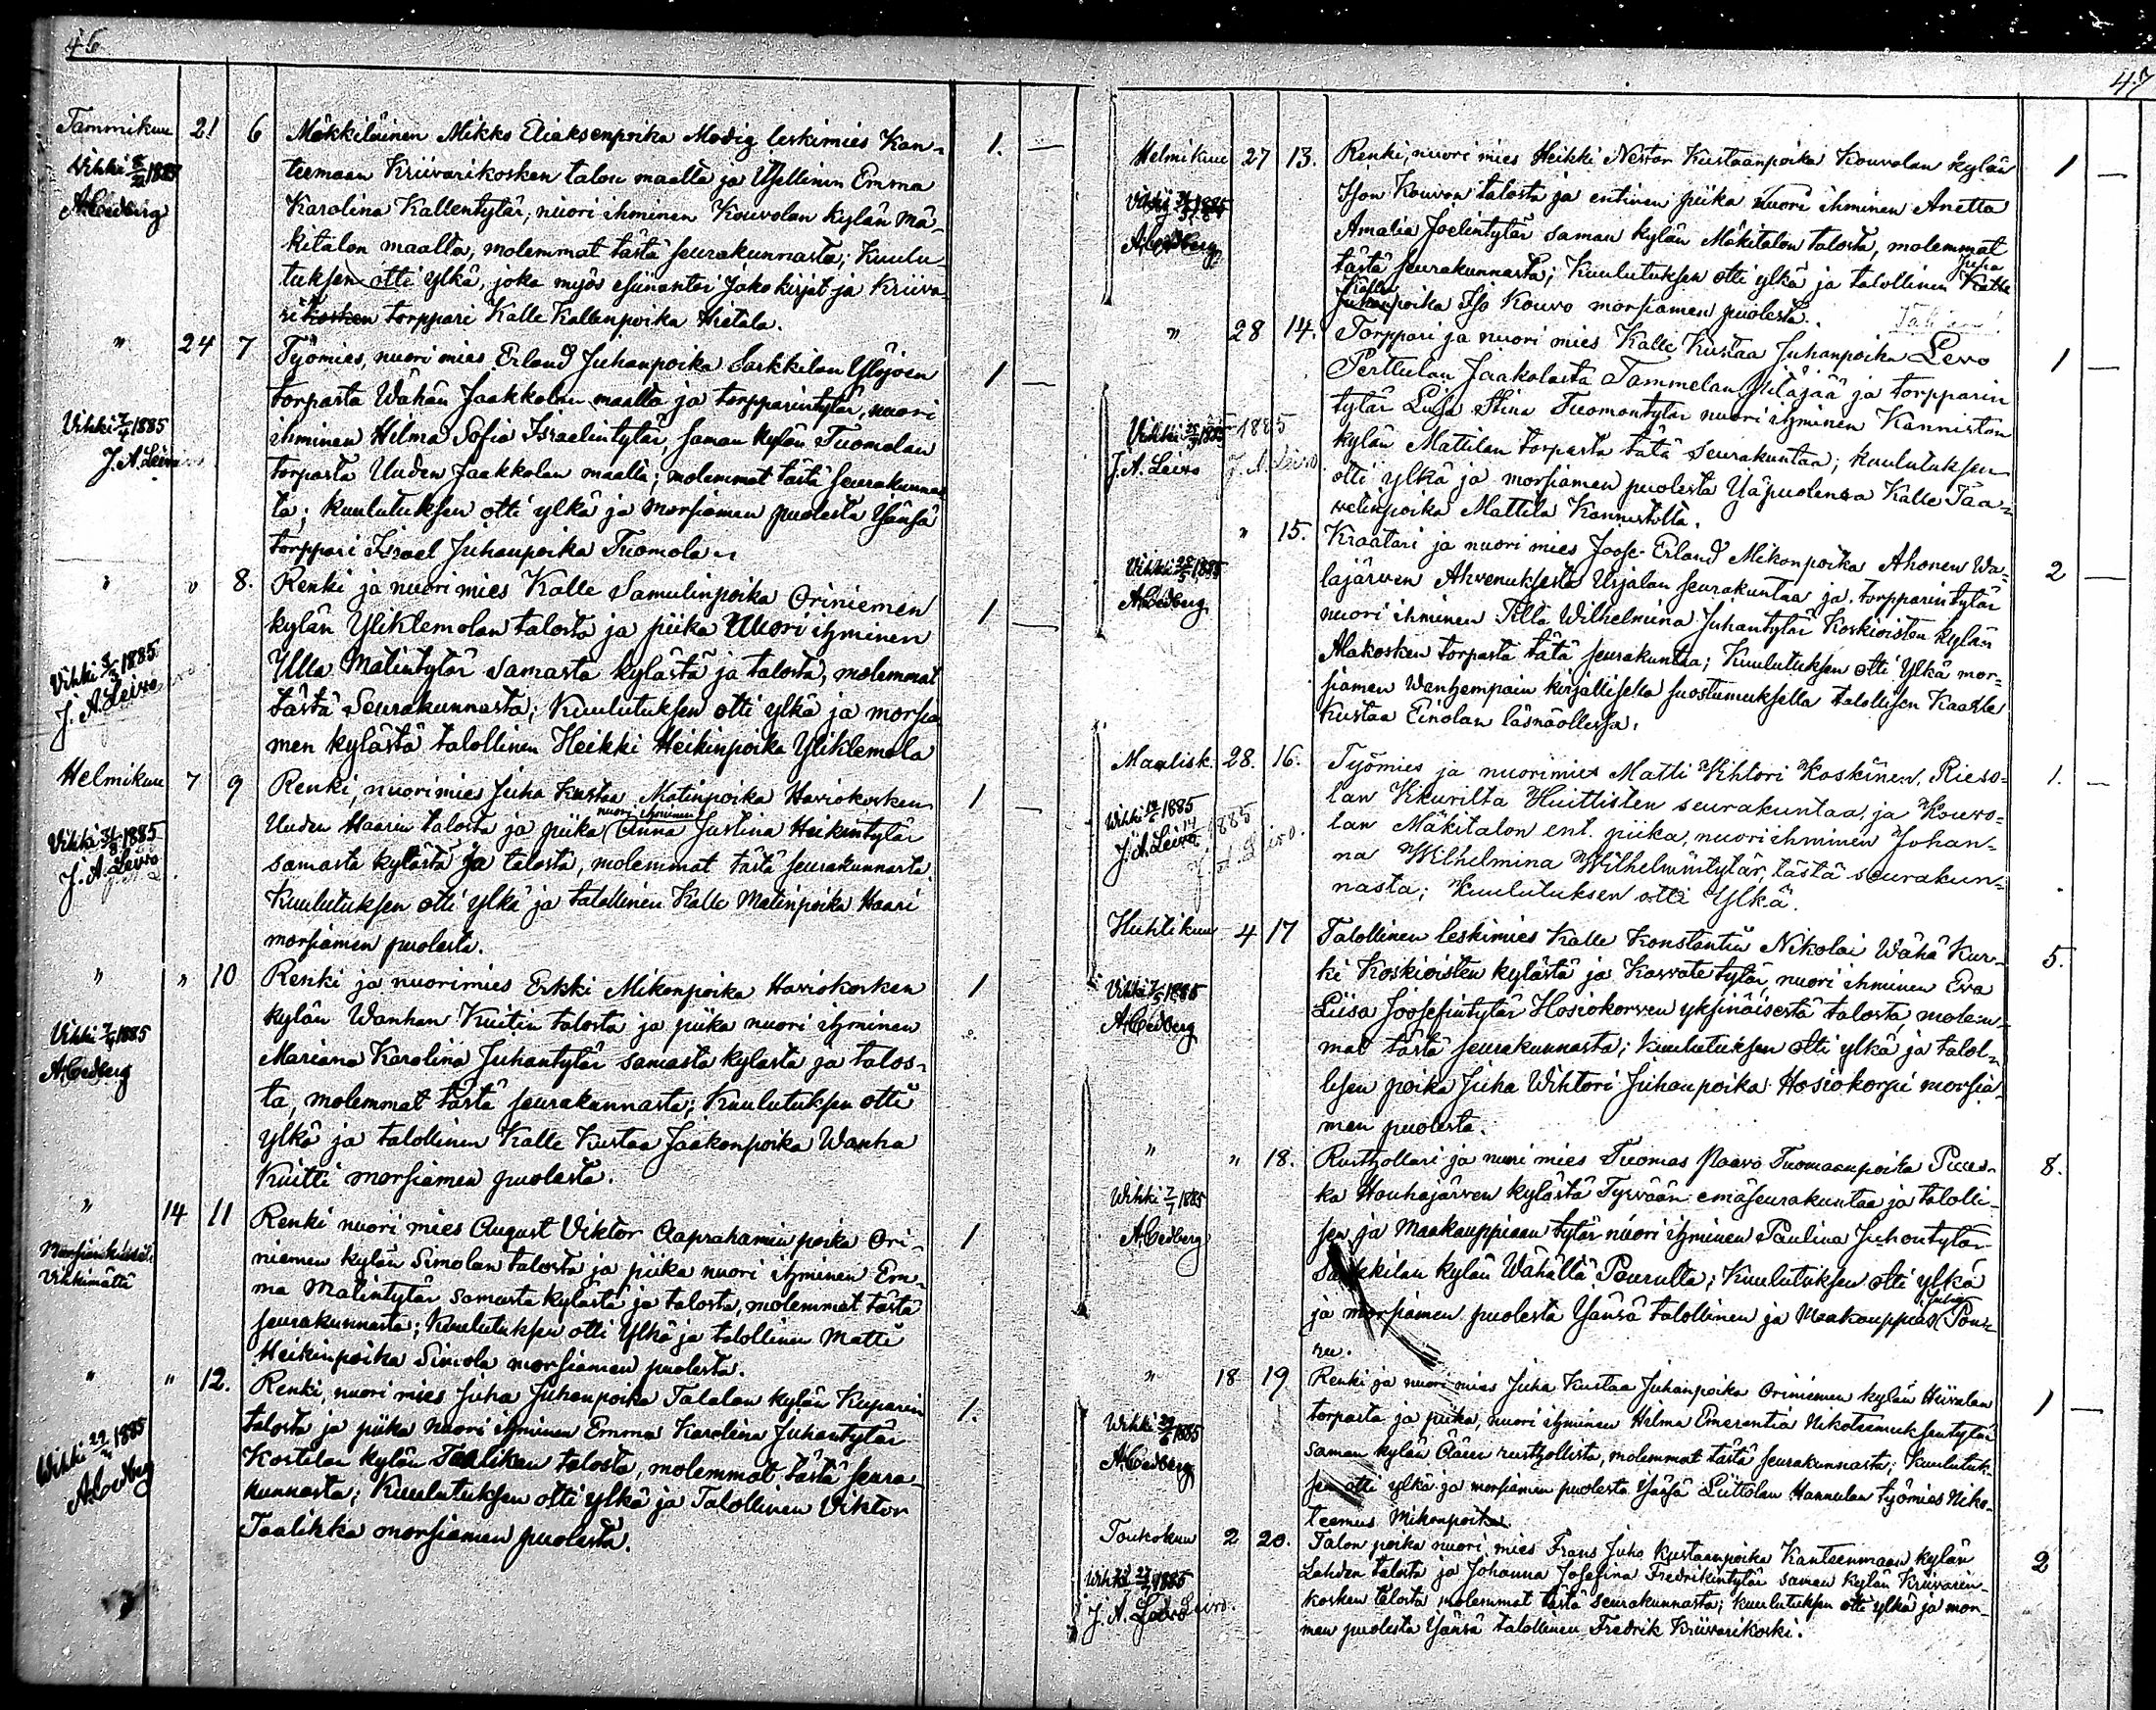 46
Tammikuu 21 6 Mäkkiläinen Mikko Eliaksenpoika Modig leskimies Kan-
Vihki 1885 teemaan Kriivarikosken talon maalta ja Itsellinen Emma
A. Cedberg Karolina Kallentytär, nuori ihminen Kouvolan kylän Mä-
kitalon maalta, molemmat tästä seurakunnasta; Kuulu-
tuksen otti ylkä, joka myös esiinantoi Jakokirjat ja Kriiva-
rikosken torppari Kalle Kallenpoika Hietala.
1. —
" 24 7 Työmies, nuori mies Erland Juhanpoika Sarkkilan Ylöjoen
torpasta Wähän Jaakkolan maalta ja torpparintytär, nuori
Vihki 7/4 1885 ihminen Hilma Sofia Israelintytär, saman kylän Tuomolan
J. A. Leivo torpasta Uuden Jaakkolan maalla; molemmat tästä seurakunnas
ta; kuulutuksen otti ylkä ja morsiamen puolesta Isänsä
torppari Israel Juhanpoika Tuomola.
1 —
" " 8. Renki ja nuori mies Kalle Samulinpoika Oriniemen
kylän Yliklemolan talosta ja piika Nuori ihminen
Vihki 1885 Ulla Matintytär samasta kylästä ja talosta, molemmat
J. A. Leivo tästä Seurakunnasta; Kuulutuksen otti ylkä ja morsia
men kylästä talollinen Heikki Heikinpoika Yliklemola
1 —
Helmikuu 7 9 Renki, nuorimies Juha Kustaa Matinpoika Haviokosken
nuori ihminen
Uuden Haarin talosta ja piika Anna Justina Heikintytär
Vihki 31/3 1885 samasta kylästä ja talosta, molemmat tästä seurakunnasta.
J. A. Leivo Kuulutuksen otti ylkä ja talollinen Kalle Matinpoika Haari
morsiamen puolesta.
1 —
" " 10 Renki ja nuorimies Erkki Mikonpoika Haviokosken
kylän Wanhan Kuitin talosta ja piika nuori ihminen
Vihki 1885 Mariana Karolina Juhantytär samasta kylästä ja talos-
A. Cedberg ta, molemmat tästä seurakunnasta; Kuulutuksen otti
ylkä ja talollinen Kalle Kustaa Jaakonpoika Wanha
Kuitti morsiamen puolesta.
1
" 14 11 Renki nuori mies August Viktor Aaprahamin poika Ori-
niemen kylän Simolan talosta ja piika nuori ihminen Em-
Vihkimättä ma Matintytär samasta kylästä ja talosta, molemmat tästä
seurakunnasta; Kuulutuksen otti Ylkä ja talollinen Matti
Heikinpoika Simola morsiamen puolesta.
1
" " 12. Renki, nuori mies Juha Juhanpoika Talalan kylän Kuparin
talosta ja piika nuori ihminen Emma Karolina Juhantytär
Vihki 1885 Kostilan kylän Taalikan talosta, molemmat tästä seura-
A. Cedberg kunnasta; Kuulutuksen otti ylkä ja Talollinen Viktor
Taalikka morsiamen puolesta.
1.
47
Helmikuu 27 13. Renki, nuori mies Heikki Nestor Kustaanpoika Kouvolan kylän
Ison Kouvon talosta ja entinen piika nuori ihminen Anetta
Vihki 1885 Amalia Joelintytär saman kylän Mäkitalon talosta, molemmat
A. Cedberg tästä seurakunnasta; Kuulutuksen otti ylkä ja talollinen Kalle Juha
Kalle
Juhanpoika Iso Kouvo morsiamen puolesta.
1 —
" 28 14. Torppari ja nuori mies Kalle Kustaa Juhanpoika Levo
Perttulan Jaakolasta Tammelan pitäjää ja torpparin
Vihki 1885 tytär Luisa Stina Tuomontytär nuori ihminen Kanniston
J. A. Leivo kylän Mattilan torpasta tätä seurakuntaa; kuulutuksen
otti ylkä ja morsiamen puolesta Isäpuolensa Kalle Taa-
vetinpoika Mattila Kannistolta.
1 —
" 15. Kraatari ja nuori mies Joose Erland Mikonpoika Ahonen Wa-
Vihki 1885 lajärven Ahvenuksesta Urjalan seurakuntaa ja torpparintytär
A. Cedberg nuori ihminen Tilla Wilhelmiina Juhantytär Koskioisten kylän
Alakosken torpasta tätä seurakuntaa; Kuulutuksen otti Ylkä mor-
siamen Wanhempain kirjallisella suostumuksella talollisen Kaarle
Kustaa Einolan läsnäollessa.
2 —
Maalisk. 28. 16. Työmies ja nuorimies Matti Vihtori Koskinen, Rieso-
lan Kkurilta Huittisten seurakuntaa, ja Kouvo-
Vihki 1885 lan Mäkitalon ent. piika, nuori ihminen Johan-
J. A. Leivo na Wilhelmina Wilhelmintytär, tästä seurakun-
nasta; Kuulutuksen otti Ylkä.
1. —
Huhtikuu 4 17 Talollinen leskimies Kalle Konstantin Nikolai Wähä Kur-
ki Koskioisten kylästä ja Kasvate tytär, nuori ihminen Eva
Vihki 1885 Liisa Joosefintytär Hosiokorven yksinäisestä talosta, molem-
A. Cedberg mat tästä seurakunnasta; Kuulutuksen otti ylkä ja talol-
lisen poika Juha Wihtori Juhanpoika Hosiokorpi morsia-
men puolesta.
5.
" " 18. Rusthollari ja nuori mies Tuomas Paavo Tuomaanpoika Puus-
ka Houhajärven kylästä Tyrvään emäseurakuntaa ja talolli-
Wihki 1885 sen ja Maakauppiaan tytär nuori ihminen Paulina Juhontytär
A. Cedberg Sarkkilan kylän Wähältä Pourulta; Kuulutuksen otti ylkä
ja morsiamen puolesta Isänsä talollinen ja Maakauppias Juho Pou-
ru.
8.
" 18 19 Renki ja nuori mies Juha Kustaa Juhanpoika Oriniemen kylän Hiivalan
torpasta ja piika, nuori ihminen Hilma Emerentia Nikoteemuksentytär
Wihki 1885 saman kylän rusthollista, molemmat tästä seurakunnasta; Kuulutuk-
A. Cedberg sen otti ylkä ja morsiamen puolesta Isänsä Liittolan Hannulan työmies Niko-
teemus Mikonpoika.
1 —
Toukokuu 2 20. Talon poika nuori mies Frans Juho Kustaanpoika Kanteenmaan kylän
Lahden talosta ja Johanna Josefina Fredrikintytär saman kylän Kriivarin-
Wihki 1885 kosken talosta molemmat tästä seurakunnasta; kuulutuksen otti ylkä ja mor-
J. A. Leivo men puolesta Isänsä talollinen Fredrik Kriivarikoski.
2